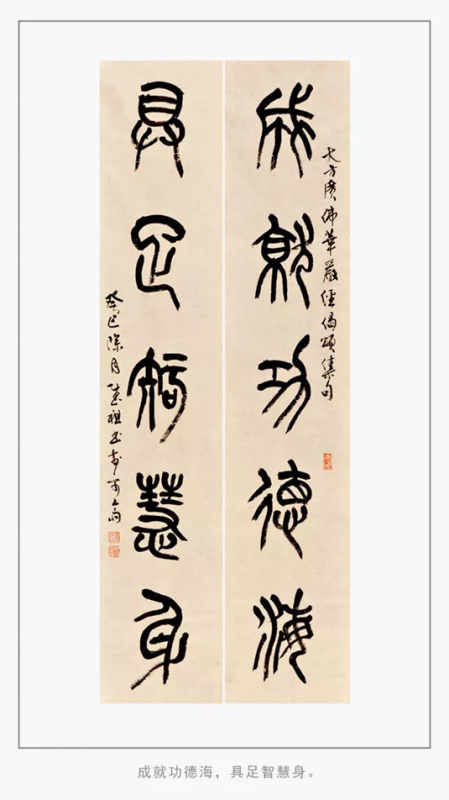 大方广佛華嚴經偈頌集句
成就功德海
具足智慧身
癸巳除月
成就功德海，具足智慧身。